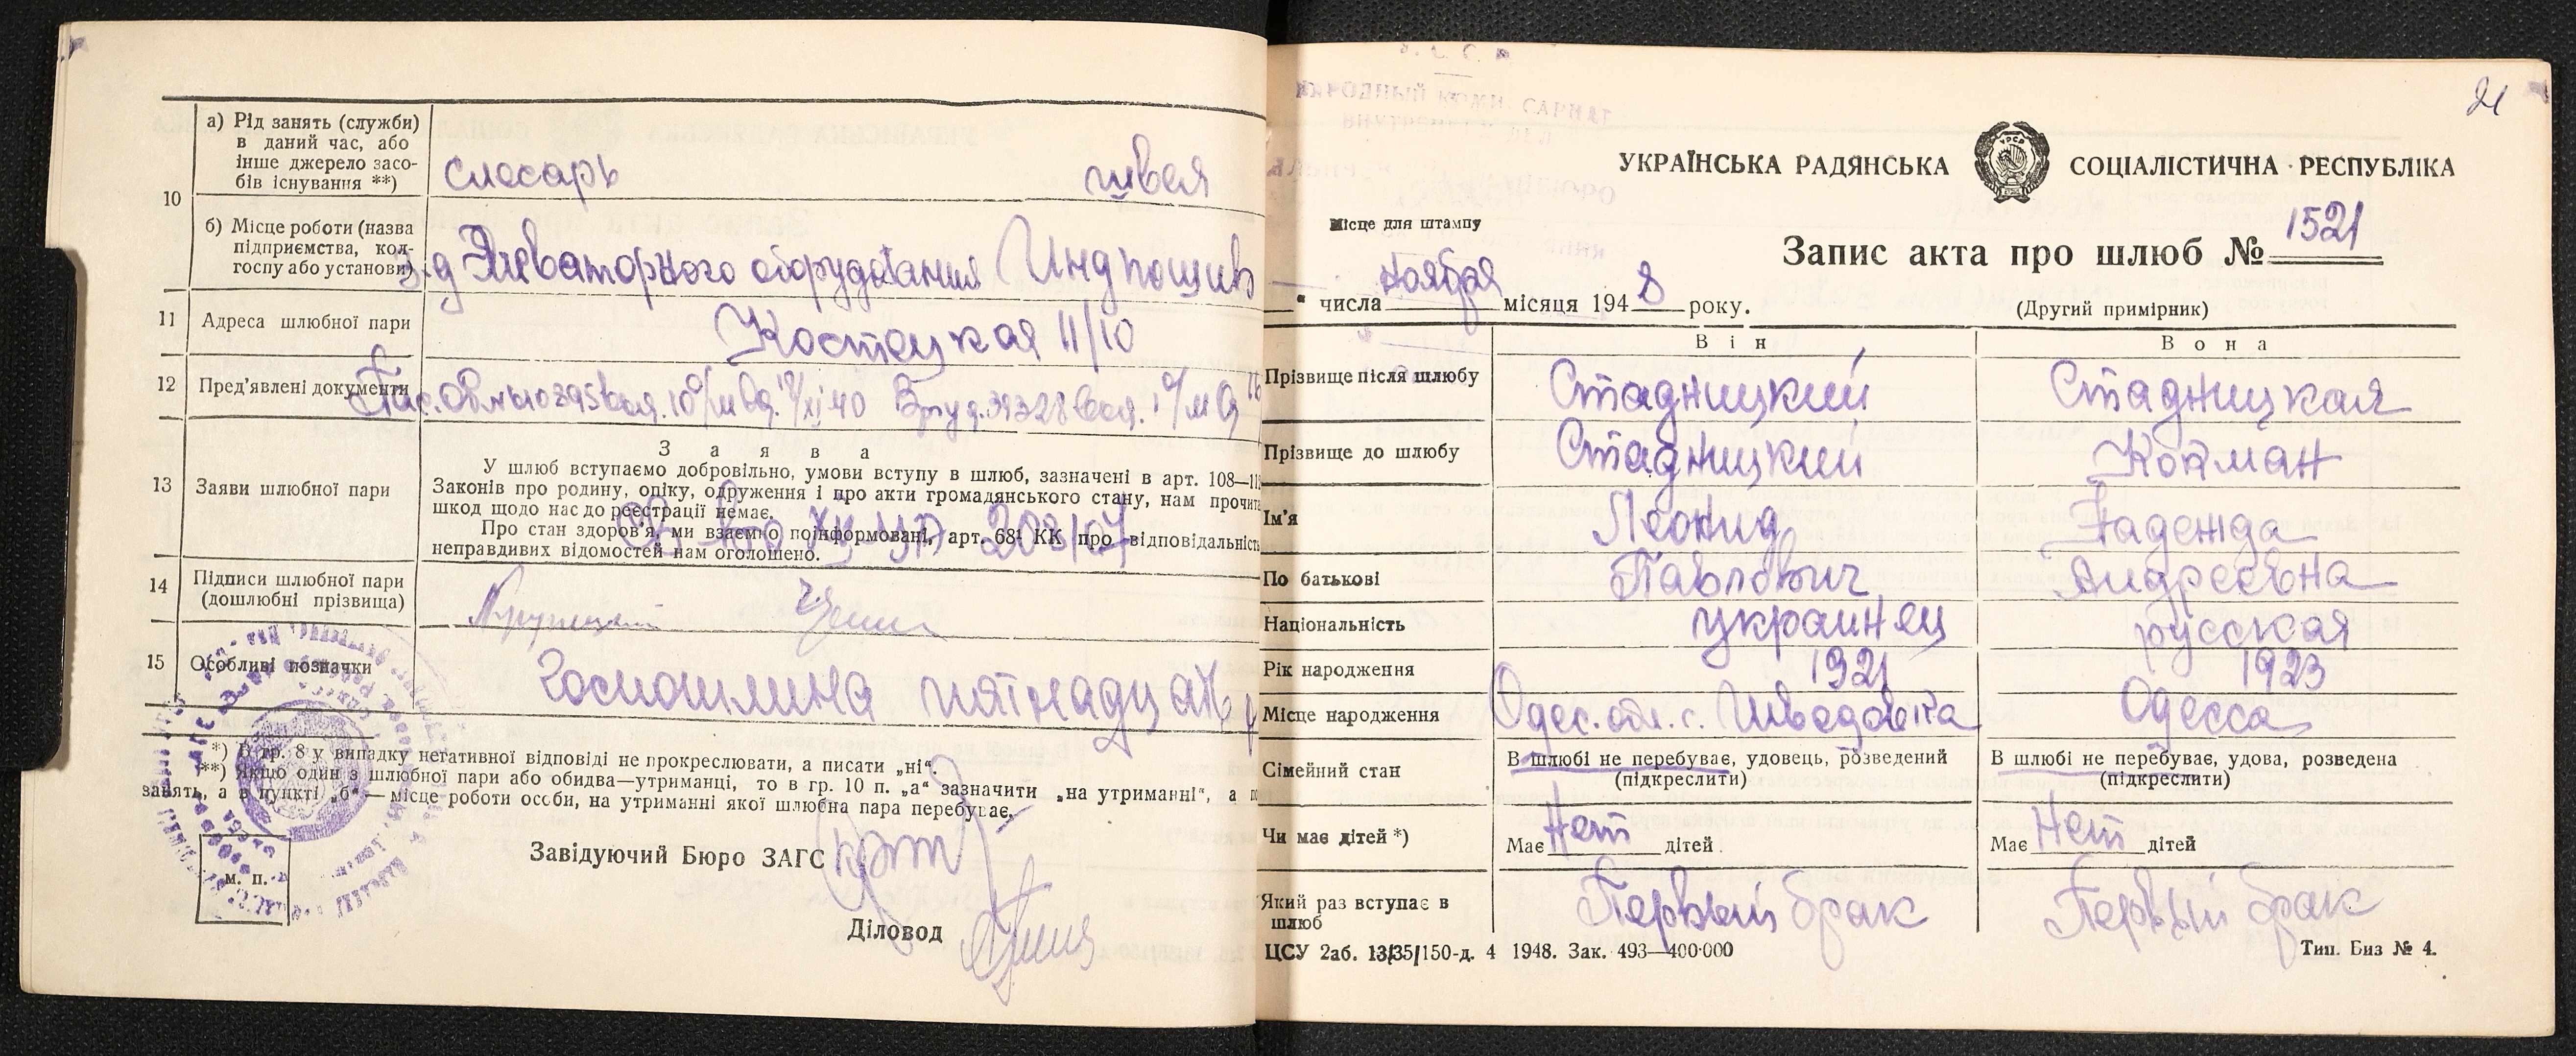 10
а) Рід занять (служби)
в даний час, або
інше джерело засо-
бів існування **)
слесарь швея
б) Місце роботи (назва
підприємства, кол-
госпу або установи)
З-д Элеваторного оборудования Индпошив
11 Адреса шлюбної пари
Костецкая 11/10
12 Пред'явлені документи
13 Заяви шлюбної пари
З а я в а
У шлюб вступаємо добровільно, умови вступу в шлюб, зазначені в арт. 108—11
Законів про родину, опіку, одруження і про акти громадянського стану, нам прочит
шкод щодо нас до реєстрації немає.
Про стан здоров'я, ми взаємно поінформовані, арт. 68¹ КК про відповідальність
неправдивих відомостей нам оголошено.
14 Підписи шлюбної пари
(дошлюбні прізвища)
15 Особливі позначки
Госпошлина пятнадцать р
*) В гр. 8 у випадку негативної відповіді не прокреслювати, а писати „ні“.
**) Якщо один з шлюбної пари або обидва—утриманці, то в гр. 10 п. „а“ зазначити „на утриманні“, а
занять, а в пункті „б“ — місце роботи особи, на утриманні якої шлюбна пара перебуває.
Завідуючий Бюро ЗАГС
м. п.
Діловод
21
НАРОДНЫЙ КОМИССАРИАТ
УКРАЇНСЬКА РАДЯНСЬКА СОЦІАЛІСТИЧНА РЕСПУБЛІКА
УРСР
Місце для штампу
Запис акта про шлюб № 1521
" числа ноября місяця 1948 року.
(Другий примірник)
В і н В о н а
Прізвище після шлюбу Стадницкий Стадницкая
Прізвище до шлюбу Стадницкий Койман
Ім'я Леонид Надежда
По батькові Павлович Андреевна
Національність украинец русская
Рік народження 1921 1923
Місце народження Одес. обл. с. Шведовка Одесса
Сімейний стан В шлюбі не перебуває, удовець, розведений В шлюбі не перебуває, удова, розведена
(підкреслити) (підкреслити)
Чи має дітей *) Має Нет дітей. Має Нет дітей
Який раз вступає в
шлюб
Первый брак Первый брак
ЦСУ 2аб. 13/35/150-д. 4 1948. Зак. 493—400·000 Тип. Биз № 4.